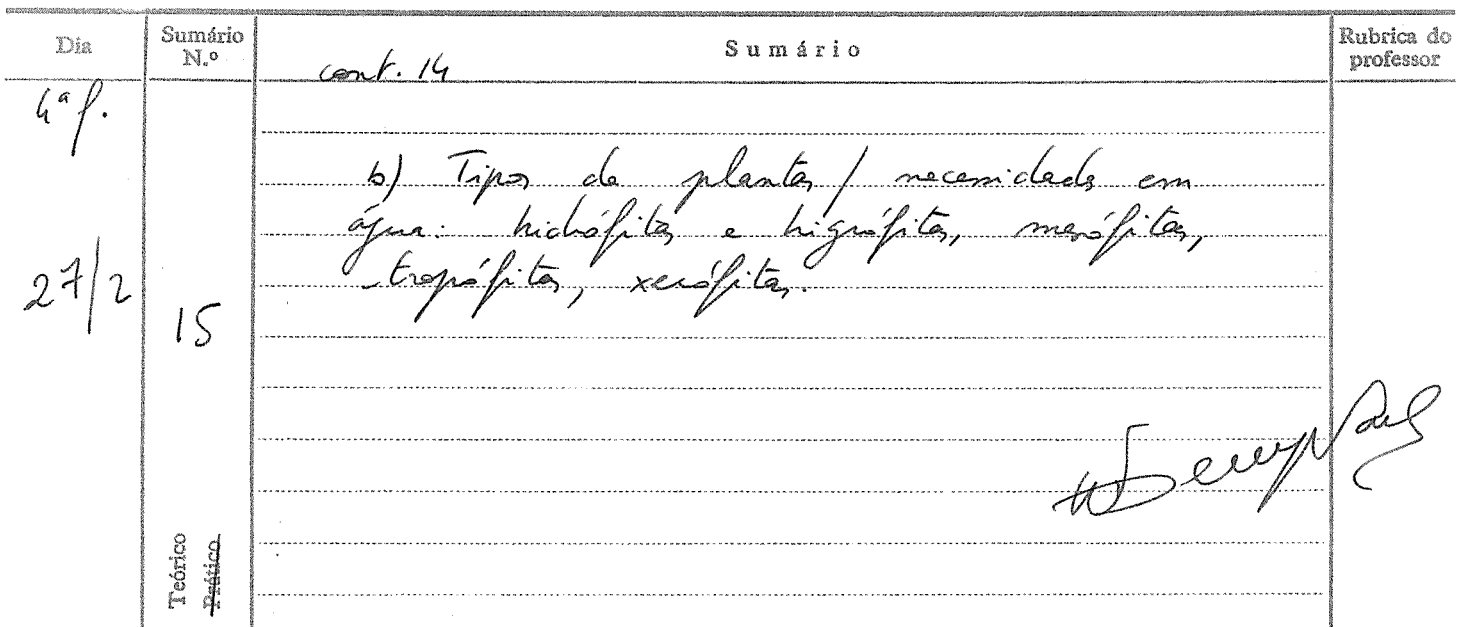 Dia
Sumário N.º
Sumário
Rubrica do professor
cont. 14
4ª f.
b) Tipos de plantas / necessidades em
água: hidrófitas e higrófitas, mesófitas,
tropófitas, xerófitas.
27/2
15
Teórico
Prático